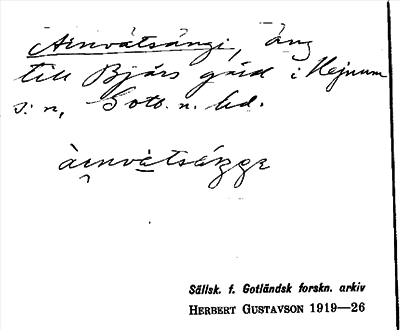 Arnvátsängi, äng
till Bjärs gård i Hejnum
s:n, Gotl. n. hd.
àrnvàtsáŋge
Sällsk. f. Gotländsk forskn. arkiv
HERBERT GUSTAVSON 1919—26